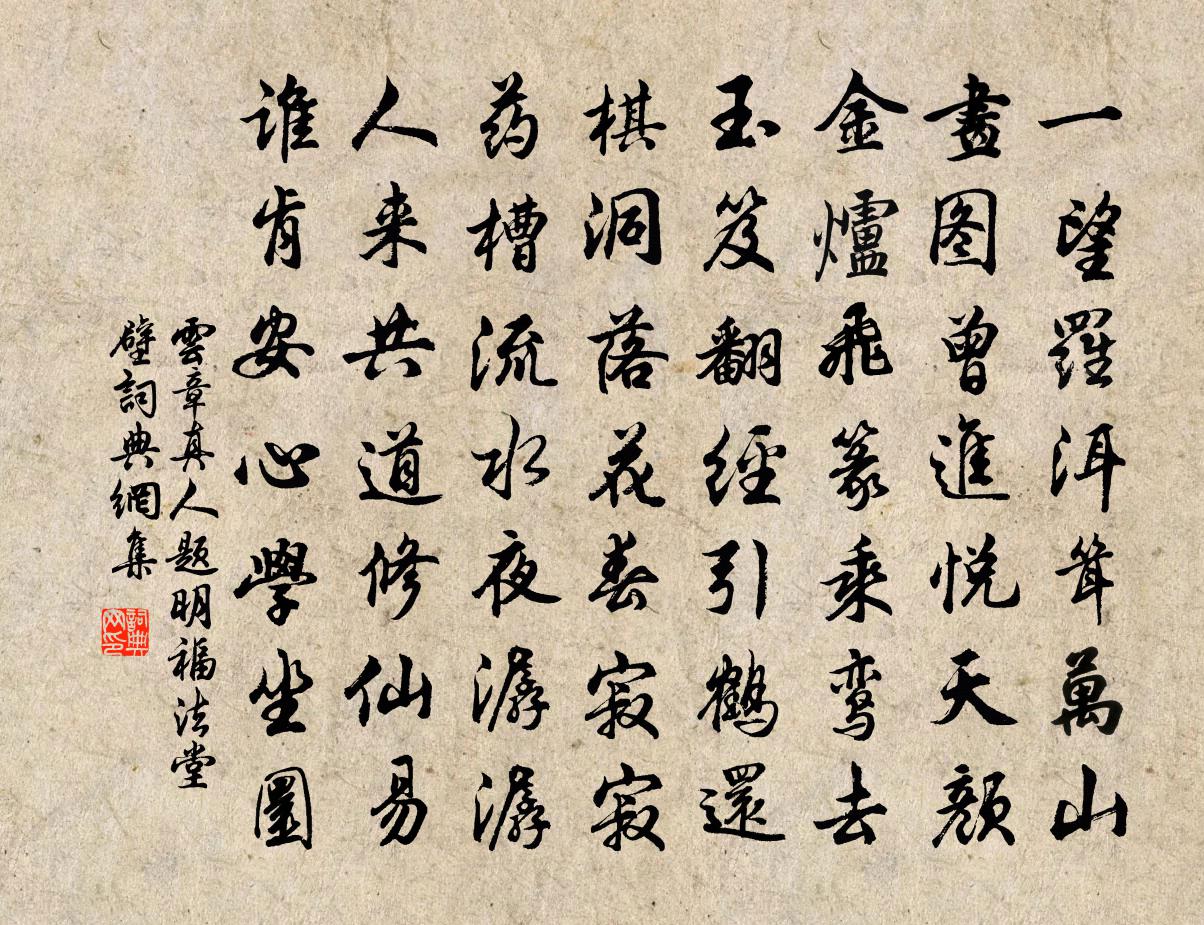 一望羅洱耸萬山
畫图曾進悦天顔
金爐飛篆乘鸾去
玉笈翻經引鶴還
棋洞落花春寂寂
药槽流水夜潺潺
人来共道修仙易
谁肯安心學坐圜
雲章真人题明福法堂
壁詞典網集
詞典网印